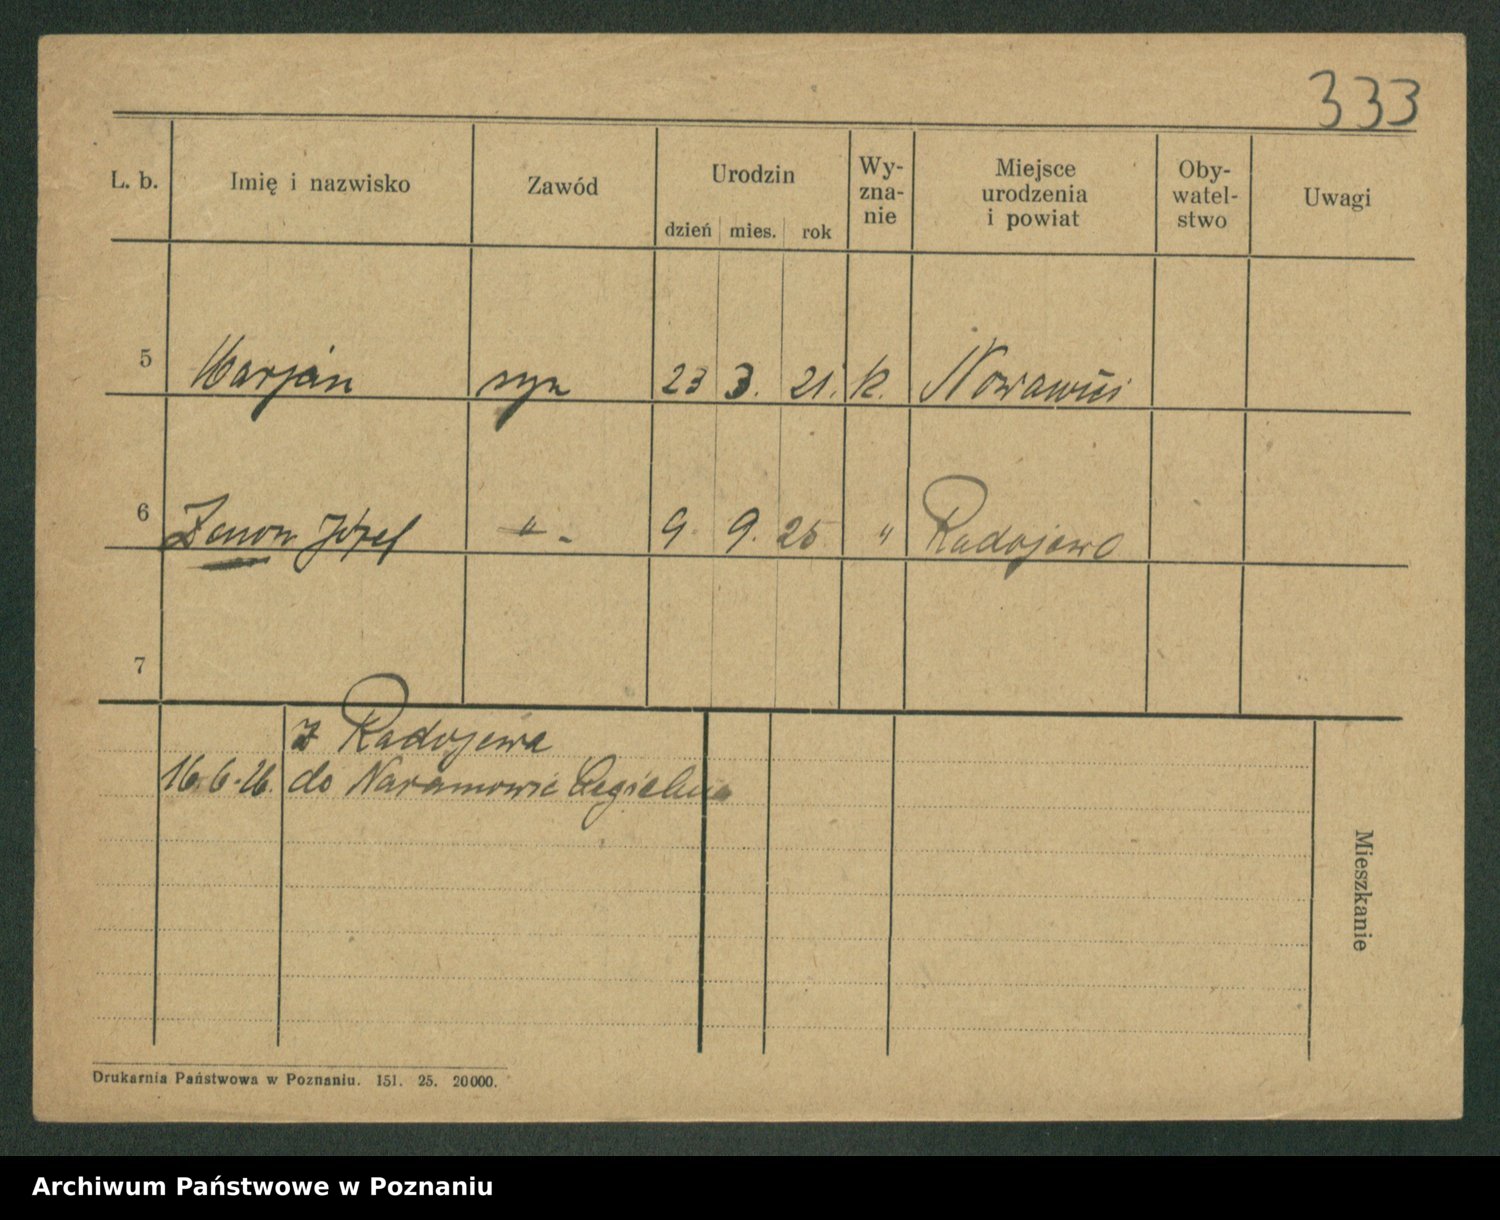 333
L. b. Imię i nazwisko Zawód Urodzin dzień mies. rok Wy-zna-nie Miejsce urodzenia i powiat Oby-watel-stwo Uwagi
5 Marjan syn 23 3. 21. k. Nowawieś
6 Zenon Józef " - 9. 9. 25 " Radojewo
7
z Radojewa
16.6.26. do Naramowic Cegielnia
Mieszkanie
Drukarnia Państwowa w Poznaniu. 151. 25. 20000.
Archiwum Państwowe w Poznaniu